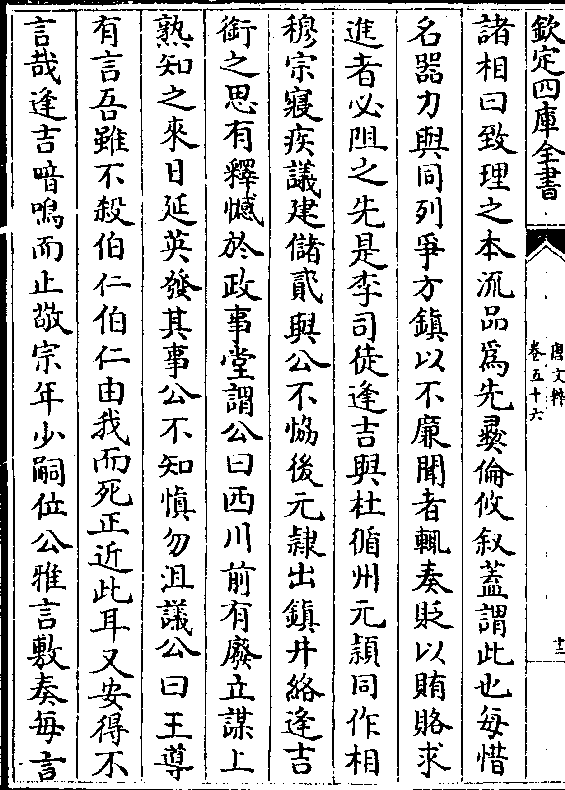 欽定四庫全書
唐文粹
卷五十六
十二
諸相曰致理之本流品為先彛倫攸叙葢謂此也每惜
名器力與同列爭方鎮以不㢘聞者輒奏貶以賄賂求
進者必阻之先是李司徒逢吉與杜循州元頴同作相
穆宗寢疾議建儲貳與公不恊後元隷出鎮井絡逢吉
銜之思有釋憾於政事堂謂公曰西川前有廢立謀上
熟知之來日延英發其事公不知慎勿沮議公曰王導
有言吾雖不殺伯仁伯仁由我而死正近此耳又安得不
言哉逢吉喑嗚而止敬宗年少嗣位公雅言敷奏每言